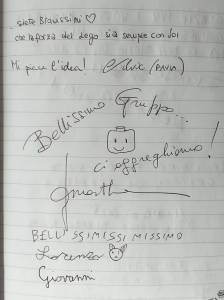 siete Bravissimi ♡
che la forza del Lego sia sempre con voi
Mi piace l'idea! (PAVIA)
Bellissimo Gruppo...
ci aggreghiamo!
BELLISSIMISSIMISSIMO
Lorenzo
Giovanni